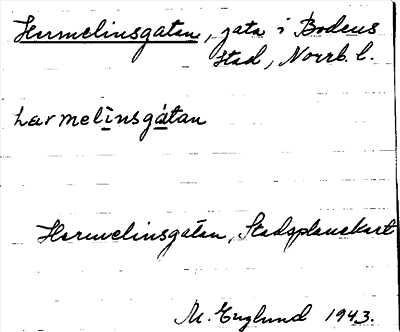 Hermelinsgatan, gata i Bodens
stad, Norrb. l.
hermelìnsgátan
Hermelinsgatan, Stadsplanekart
M. Englund 1943.